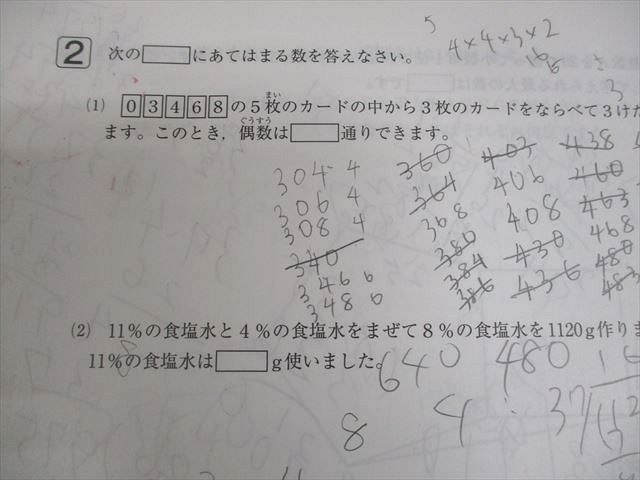 5
4×4×3×2
16
3
2 次の□にあてはまる数を答えなさい。
(1) 0 3 4 6 8 の5枚のカードの中から3枚のカードをならべて3けた
ます。このとき,偶数は□通りできます。
304 4 360 403 438
306 4 364 406 460
308 4 368 408 463
340 380 430 468
346 6 384 436 480
348 6 386 483
(2) 11%の食塩水と4%の食塩水をまぜて8%の食塩水を1120g作りま
11%の食塩水は□g使いました。
640 480
8 4 37